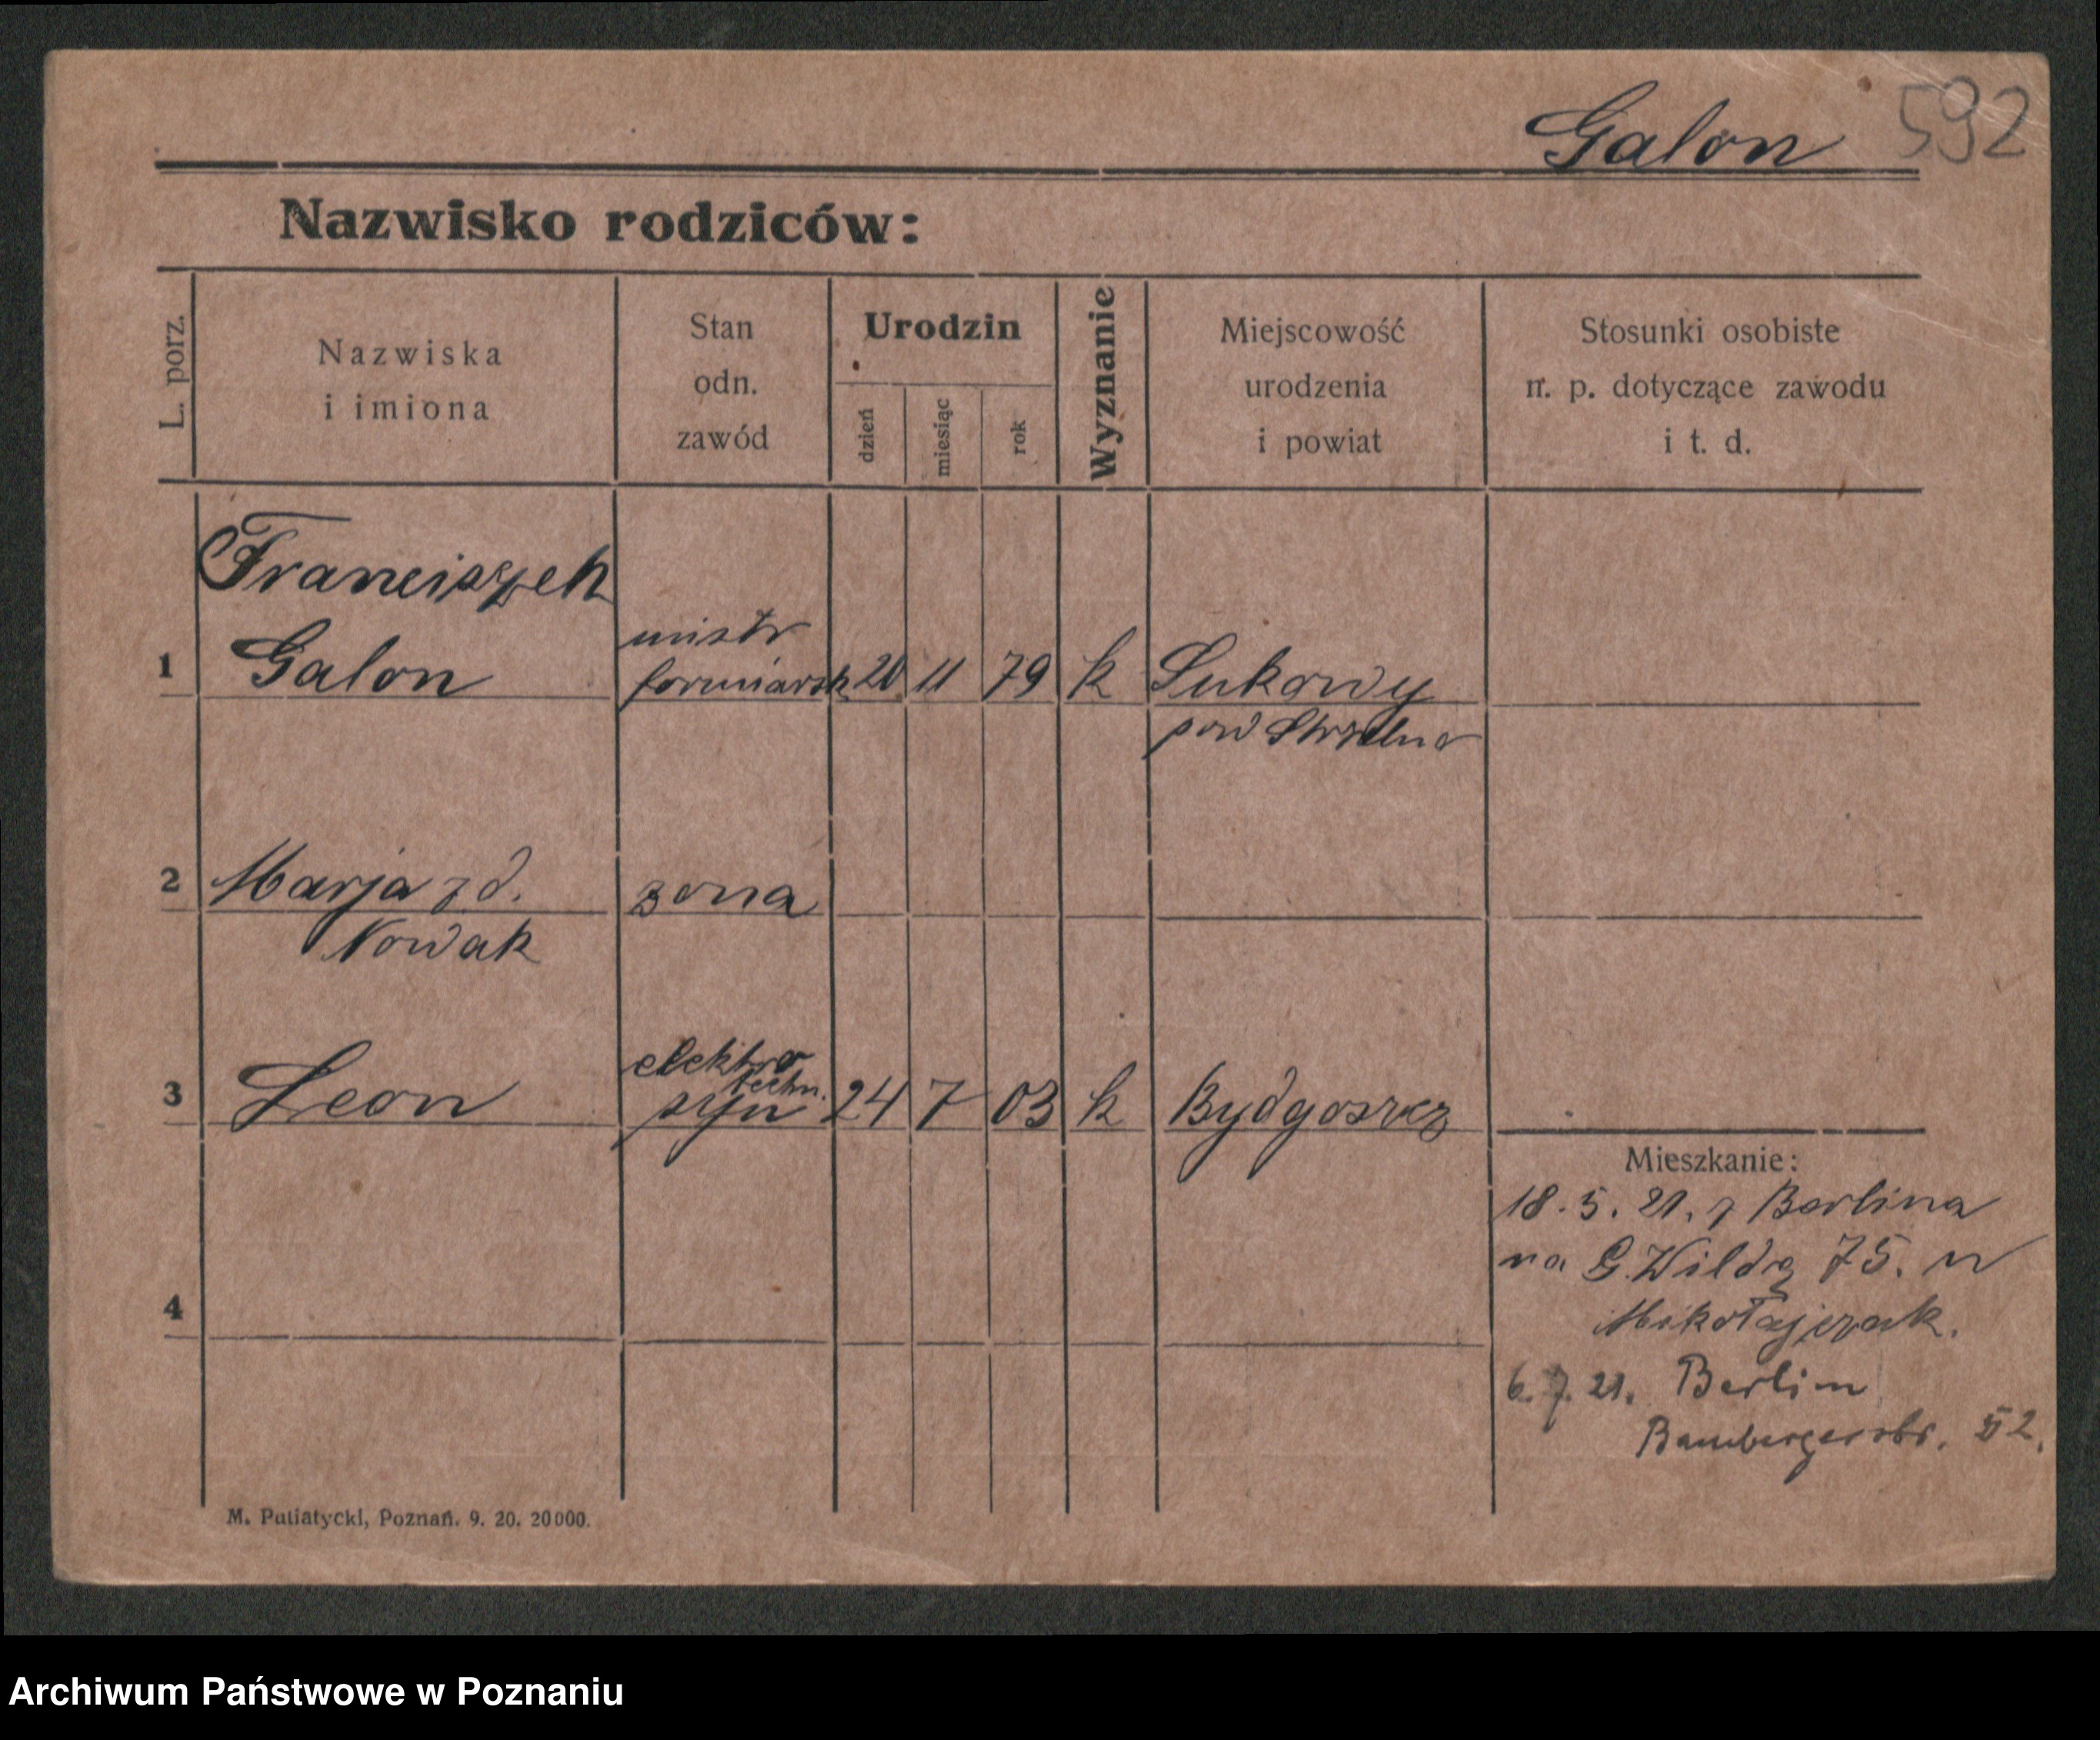 Galon 592
Nazwisko rodziców:
L. porz.
Nazwiska
i imiona
Stan
odn.
zawód
Urodzin
dzień
miesiąc
rok
Wyznanie
Miejscowość
urodzenia
i powiat
Stosunki osobiste
n. p. dotyczące zawodu
i t. d.
Franciszek
1 Galon mistr formiarsk 20 11 79 k Lukowy
pow Strzelno
2 Marja z d. zona
Nowak
3 Leon elektro techn. syn 24 7 03 k Bydgoszcz
4
Mieszkanie:
18. 5. 21. z Berlina
na G. Wildę 75. u
Mikołajczak.
6. 7. 21. Berlin
Bambergerstr. 52.
M. Putiatycki, Poznań. 9. 20. 20000.
Archiwum Państwowe w Poznaniu